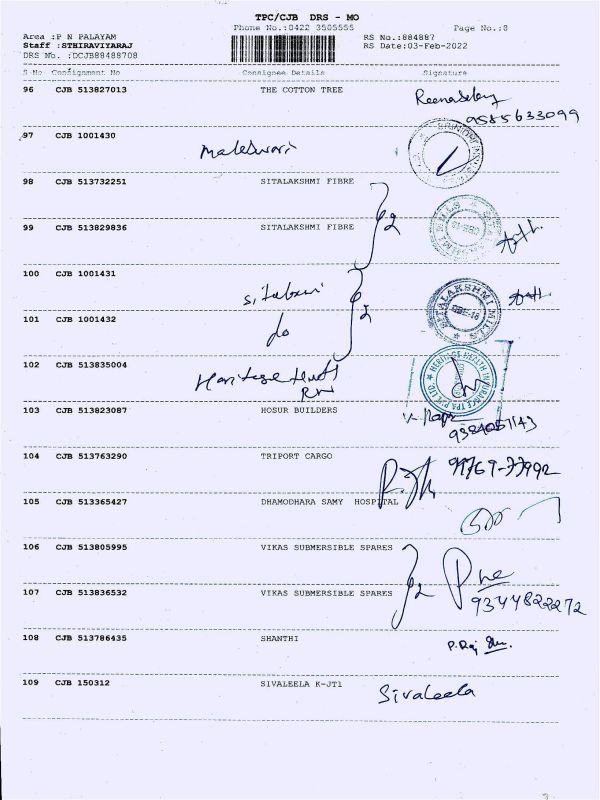 TPC/CJB DRS - MO
Phone No.:0422 3505555 Page No.:8
Area :P N PALAYAM RS No.:884887
Staff :STHIRAVIYARAJ RS Date:03-Feb-2022
DRS No. :DCJB88488708
S No Consignment No Consignee Details Signature
96 CJB 513827013 THE COTTON TREE
9585633099
97 CJB 1001430
Maleswari
98 CJB 513732251 SITALAKSHMI FIBRE
99 CJB 513829836 SITALAKSHMI FIBRE
2
100 CJB 1001431
101 CJB 1001432
do
102 CJB 513835004
Heritage Health
HERITAGE HEALTH INSURANCE TPA PVT LTD.
103 CJB 513823087 HOSUR BUILDERS
104 CJB 513763290 TRIPORT CARGO
105 CJB 513365427 DHAMODHARA SAMY HOSPITAL
106 CJB 513805995 VIKAS SUBMERSIBLE SPARES
107 CJB 513836532 VIKAS SUBMERSIBLE SPARES
2
9344822272
108 CJB 513786435 SHANTHI
P. Raj
109 CJB 150312 SIVALEELA K-JT1
Sivaleela